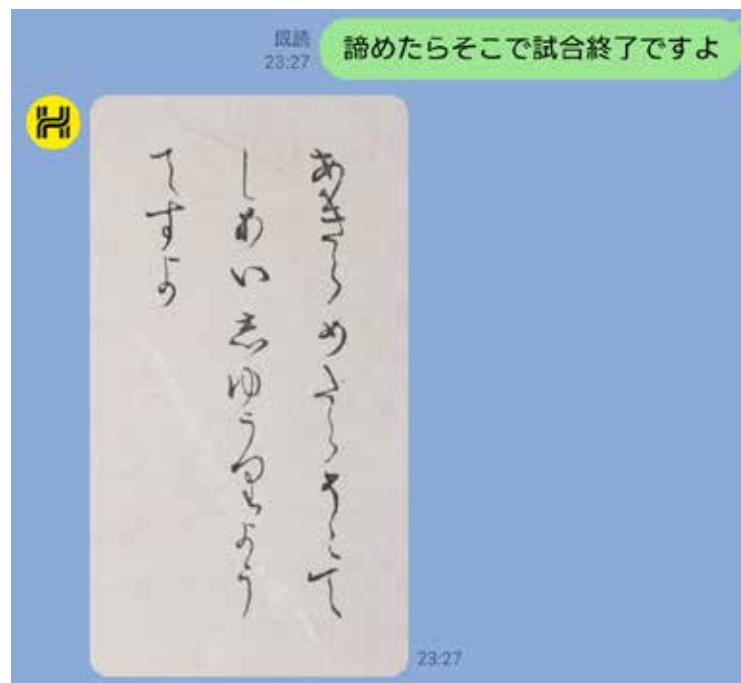 既読
23:27
諦めたらそこで試合終了ですよ
あきらめたらそこて
しあい志ゆうりよう
てすよ
23:27